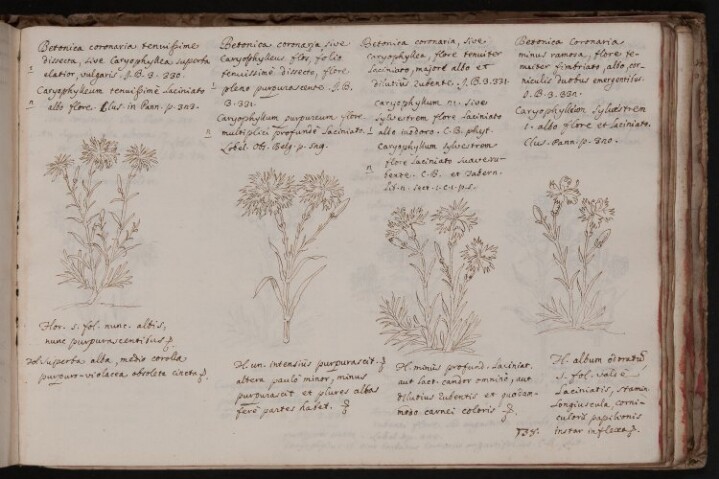 Betonica coronaria tenuissime
dissecta, sive Caryophyllea superba
elatior, vulgaris. J.B.3.330.
Caryophyleum tenuissime laciniato
albo flore. Clus. in Pann. p.
Flor. s. fol. nunc albis,
nunc purpurascentibus
superba alba, medio corolla
purpureo-violacea obsoleta cincta
Betonica coronaria, sive
Caryophylleus flos, folio
tenuissimè dissecto, flore
pleno purpurascente. J.B.
3.331.
Caryophyllum purpureum flore
multiplici profundè laciniato.
Lobel. Obs. Belg. p.
H. un. intensiùs purpurascit
altera paulò minor, minus
purpurascit et plures albas
ferè partes habet.
Betonica coronaria, sive
caryophyllea, flore tenuiter
laciniato, majore albo et
dilutius rubente. J.B.3.331.
caryophyllum sive
sylvestrem flore laciniato
albo inodoro. C.B. phyt.
caryophyllum sylvestrem
flore laciniato suave ru-
bente. C.B. et Tabern.
H. minùs profund. laciniat.
aut lact. candor omninò, aut
dilutius rubentis et quodam-
modo carnei coloris
Betonica Coronaria
minus ramosa, flore te-
nuiter fimbriato, albo, cor-
niculis duobus emergentibus.
J.B.3.331.
Caryophyllum Sylvestrem
1. albo flore et laciniato.
Clus. Pann. p. 320.
H. album
s. fol.
laciniatis, stamin
longiuscula, corni-
culorū papilionis
instar inflexa
738.